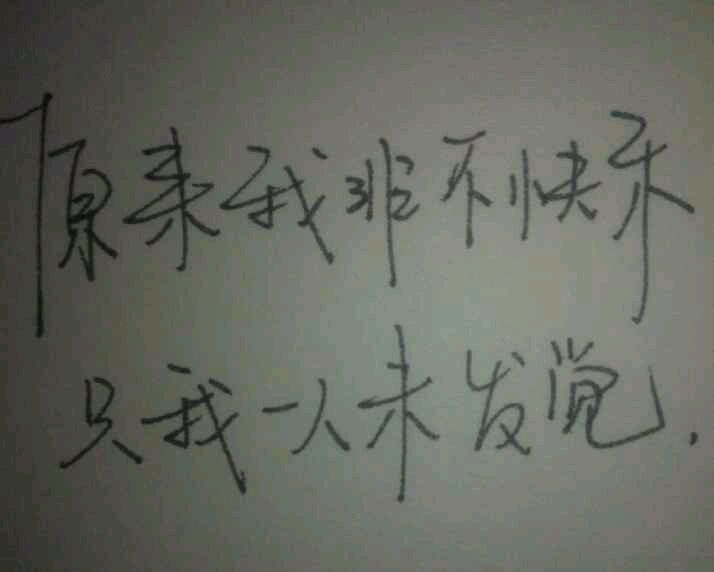 「原来我非不快乐
只我一人未发觉.」